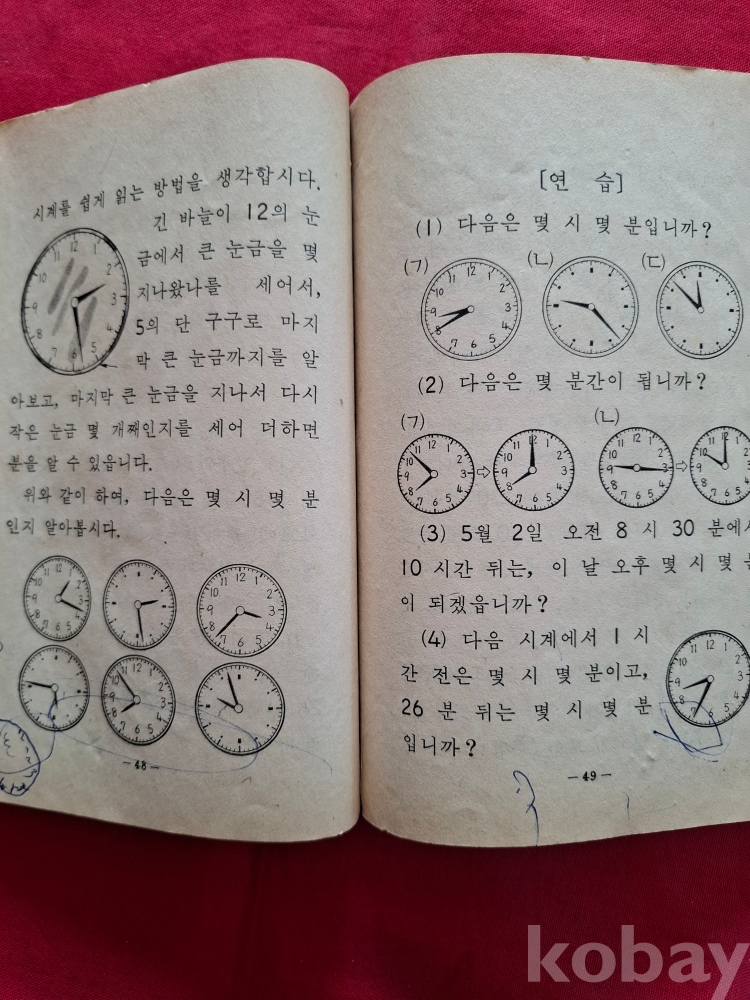 시계를 쉽게 읽는 방법을 생각합시다.
긴 바늘이 12의 눈
금에서 큰 눈금을 몇
지나왔나를 세어서,
5의 단 구구로 마지
막 큰 눈금까지를 알
아보고, 마지막 큰 눈금을 지나서 다시
작은 눈금 몇 개째인지를 세어 더하면
분을 알 수 있읍니다.
위와 같이 하여, 다음은 몇 시 몇 분
인지 알아봅시다.
-48-
[연 습]
(1) 다음은 몇 시 몇 분입니까?
(ㄱ) (ㄴ) (ㄷ)
(2) 다음은 몇 분간이 됩니까?
(ㄱ) (ㄴ)
(3) 5월 2일 오전 8 시 30 분에서
10 시간 뒤는, 이 날 오후 몇 시 몇 분
이 되겠읍니까?
(4) 다음 시계에서 1 시
간 전은 몇 시 몇 분이고,
26 분 뒤는 몇 시 몇 분
입니까?
-49-
kobay